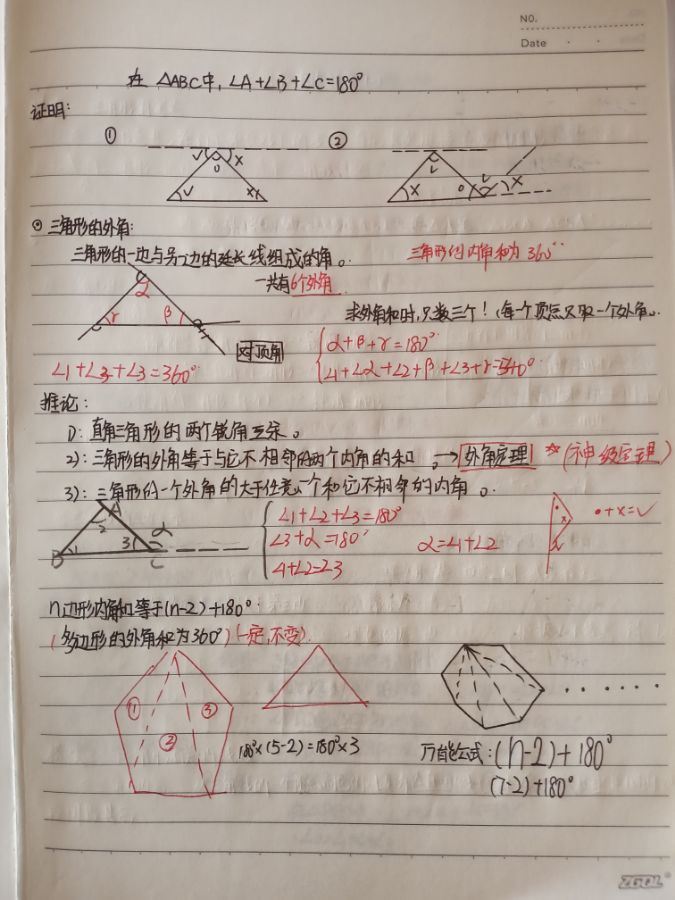 NO.
Date
在 △ABC中, ∠A+∠B+∠C=180°
证明:
① ②
三角形的外角:
三角形的一边与另一边的延长线组成的角。 三角形的内角和为 360°
一共有6个外角
求外角和时,只数三个!(每个顶点只取一个外角。
α β γ
对顶角
α+β+γ=180°
∠1+∠3+∠3=360° ∠1+∠α+∠2+β+∠3+γ=540°
推论:
1): 直角三角形的两个锐角互余。
2): 三角形的外角等于与它不相邻的两个内角的和。→外角定理 (神级定理)
3): 三角形的一个外角的大于任意一个和它不相邻的内角。
A 2 3 α B 1 C
∠1+∠2+∠3=180°
∠3+α=180° α=∠1+∠2 •+x=✓
∠1+∠2=∠3
n边形内角和等于(n-2)+180°
(多边形的外角和为360°)(一定,不变).
① ② ③
180°×(5-2)=180°×3 万能公式:(n-2)+180°
(7-2)+180°
ZGOL